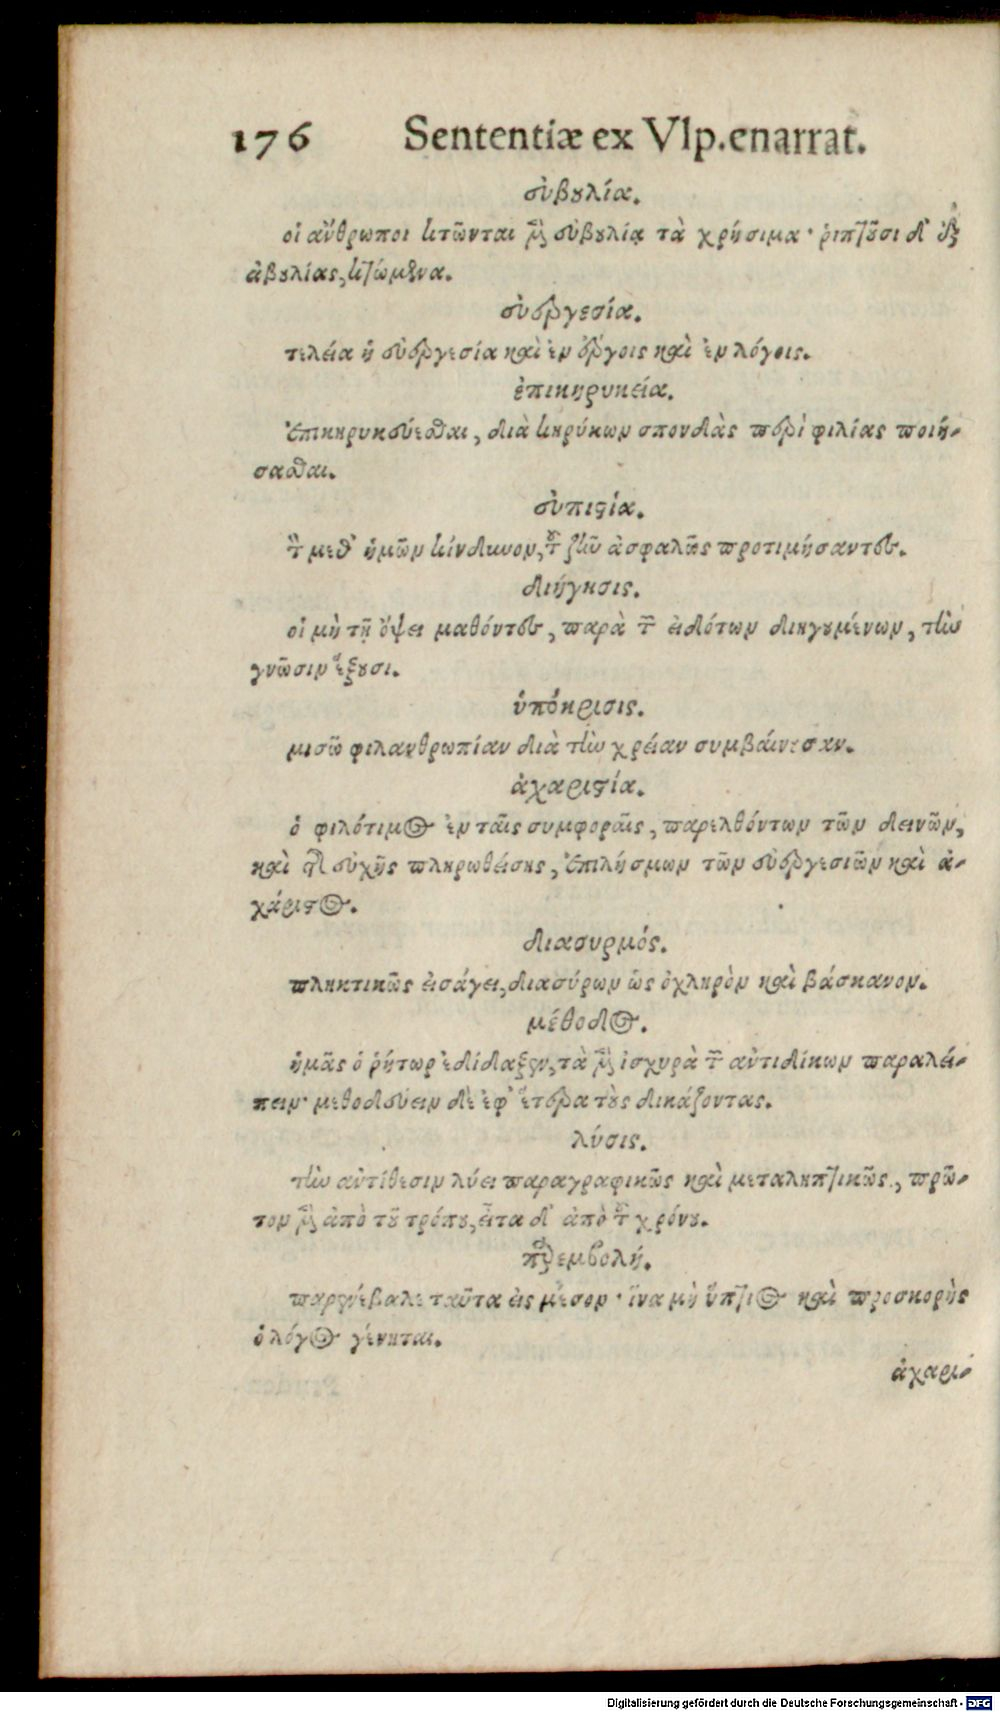 176 Sententiæ ex Vlp.enarrat.
εὐβουλία.
οἱ ἄνθρωποι κτῶνται μὲν εὐβουλίᾳ τὰ χρήσιμα· ῥιπτοῦσι δ' ἐξ
ἀβουλίας, κτώμενα.
εὐεργεσία.
τελεία ἡ εὐεργεσία καὶ ἐν ἔργοις καὶ ἐν λόγοις.
ἐπικηρυκεία.
ἐπικηρυκεύεσθαι, διὰ κηρύκων σπονδὰς περὶ φιλίας ποιή-
σασθαι.
εὐπιστία.
τὸν μεθ' ἡμῶν κίνδυνον, τοῦ ζῆν ἀσφαλῶς προτιμήσαντες.
διήγησις.
οἱ μὴ τῇ ὄψει μαθόντες, παρὰ τῶν εἰδότων διηγουμένων, τὴν
γνῶσιν ἕξουσι.
ὑπόκρισις.
μισῶ φιλανθρωπίαν διὰ τὴν χρείαν συμβαίνεσαν.
ἀχαριστία.
ὁ φιλότιμος ἐν ταῖς συμφοραῖς, παρελθόντων τῶν δεινῶν,
καὶ τῆς εὐχῆς πληρωθείσης, ἐπιλήσμων τῶν εὐεργεσιῶν καὶ ἀ-
χάριστος.
διασυρμός.
πληκτικῶς εἰσάγει, διασύρων ὡς ὀχληρὸν καὶ βάσκανον.
μέθοδος.
ἡμᾶς ὁ ῥήτωρ ἐδίδαξεν, τὰ μὲν ἰσχυρὰ τῶν ἀντιδίκων παραλεί-
πειν· μεθοδεύειν δὲ ἐφ' ἕτερα τοὺς δικάζοντας.
λύσις.
τὴν ἀντίθεσιν λύει παραγραφικῶς καὶ μεταληπτικῶς, πρῶ-
τον μὲν ἀπὸ τοῦ τρόπου, εἶτα δ' ἀπὸ τοῦ χρόνου.
παρεμβολή.
παρενέβαλε ταῦτα εἰς μέσον· ἵνα μὴ ὕπτιος καὶ προσκορὴς
ὁ λόγος γένηται.
ἀχαρι-
Digitalisierung gefördert durch die Deutsche Forschungsgemeinschaft - DFG